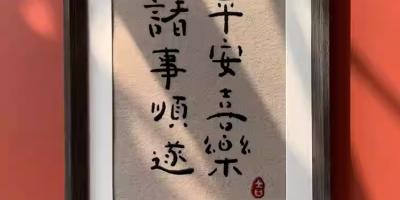 平安喜樂
諸事順遂